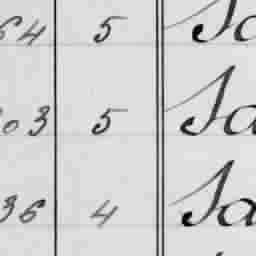 64 5 Sa
03 5 Sa
36 4 Sa